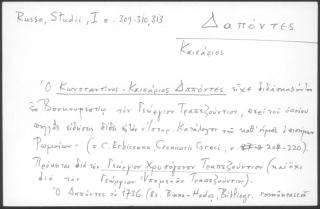 Russo, Studii, I σ. 309-310, 313
Δαπόντες
Καισάριος
Ὁ Κωνσταντῖνος-Καισάριος Δαπόντες εἶχε διδάσκαλον
ἐν Βουκουρεστίῳ τὸν Γεώργιον Τραπεζούντιον, περὶ τοῦ ὁποίου
εἰδήσεις δίδει Ἱστορ. Κατάλογον τῶν καθ' ἡμᾶς ἐπισήμων
Ῥωμαίων - (C. Erbiceanu, Cronicarii Greci, σ. 208-220).
Πρόκειται διὰ τὸν Γεώργιον Χρυσόγονον Τραπεζούντιον (καὶ ὄχι
διὰ τὸν Γεώργιον Τραπεζούντιον).
Ὁ Δαπόντες τὸ 1736 (Bianu-Hodoș, Bibliogr. românească